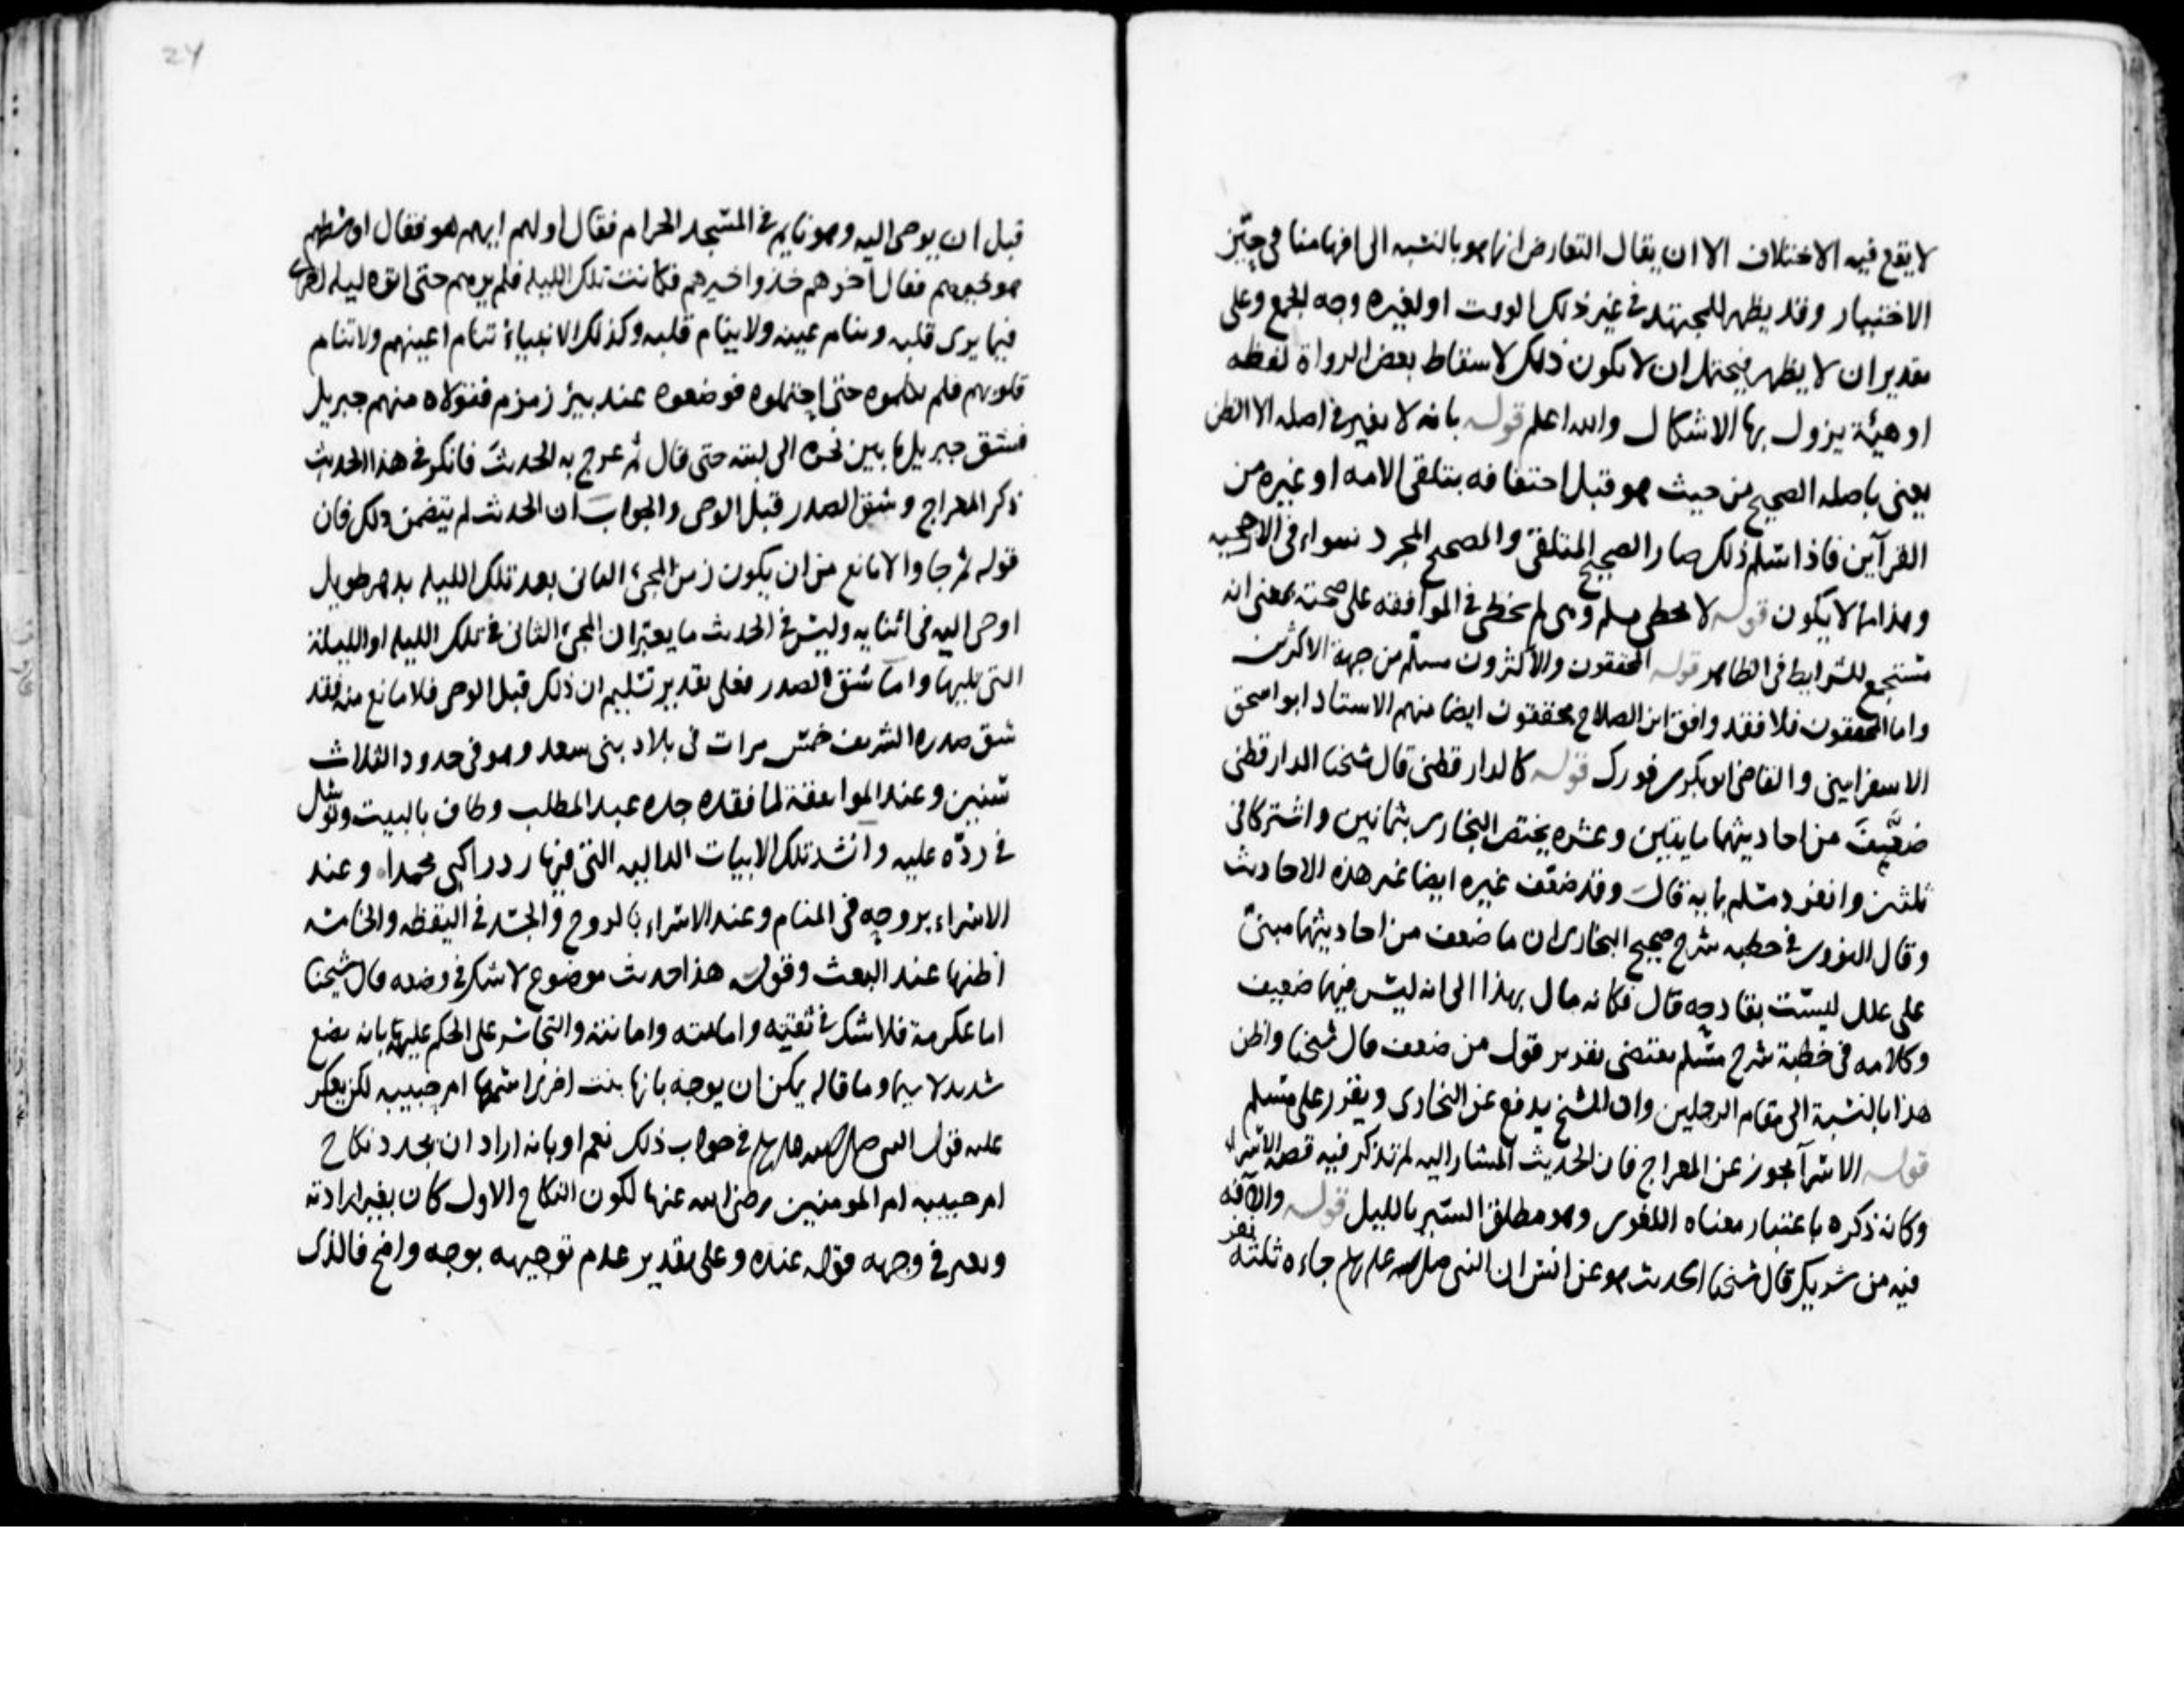 لا يقع فيه الاختلاف الا ان يقال التعارض انما هو بالنسبه الى افهامنا في حيّز
الاختبار وقد يظهر للمجتهد في غير ذلك الوقت او لغيره وجه الجمع وعلى
تقدير ان لا يظهر فيحتمل ان لا يكون ذلك لاسقاط بعض الرواة لفظه
او هيئة يزول بها الاشكال والله اعلم قوله بانه لا يفيد في اصله الا الظن
يعني باصله الصحيح من حيث هو قبل احتفافه بتلقي الامه او غيره من
القرآين فاذا سلم ذلك صار الصحيح المتلقى والصحيح المجرد سواء في الاصحيه
وهذا مما لا يكون قوله لا يخطي مسلم ومن لم يخطي في الموافقه على صحته بمعنى انه
مستجمع للشرايط في الظاهر قوله المحققون والاكثرون مسلّم من جهة الاكثرين
واما المحققون فلا فقد وافق ابن الصلاح محققون ايضا منهم الاستاد ابو اسحق
الاسفرايني والقاضي ابو بكر بن فورك قوله كالدارقطني قال شيخنا الدارقطني
ضعّيفَ من احاديثهما مايتين وعشره يختص البخاري بثمانين واشتركا في
ثلثين وانفرد مسلم بمايه قال وقد ضعّف غيره ايضا غير هذه الاحاديث
وقال النووي في خطبه شرح صحيح البخاري ان ما ضعف من احاديثهما مبنيّ
على علل ليست بقادحه قال فكانه مال بهذا الى انه ليس فيهما ضعيف
وكلامه في خطبة شرح مسلم يقتضي تقرير قول من ضعف قال شيخنا واظن
هذا بالنسبة الى مقام الرجلين وان الشيخ يدفع عن البخاري ويقرر على مسلم
قوله الاسرآ تجوز عن المعراج فان الحديث المشار اليه لم تذكر فيه قصة الاسراء
وكانه ذكره باعتبار معناه اللغوي وهو مطلق السير بالليل قوله والآفه
فيه من شريك قال شيخنا الحديث هو عن انس ان النبي صلى الله عليه وسلم جاءه ثلثة نفر
قبل ان يوحى اليه وهو نايم في المسجد الحرام فقال اولهم ايهم هو فقال اوسطهم
هو خيرهم فقال اخرهم خذوا خيرهم فكانت تلك الليله فلم يرهم حتى اتوه ليله اخرى
فيما يرى قلبه وينام عينه ولا ينام قلبه وكذلك الانبياء تنام اعينهم ولا تنام
قلوبهم فلم يكلموه حتى احتملوه فوضعوه عند بير زمزم فتولاه منهم جبريل
فشق جبريل ما بين نحره الى لبته حتى قال ثم عرج به الحديث فانكر في هذا الحديث
ذكر المعراج وشق الصدر قبل الوحي والجواب ان الحديث لم يتضمن ذلك فان
قوله ثم جاوا لا مانع من ان يكون زمن المجيء الثاني بعد تلك الليله بدهر طويل
اوحي اليه في اثنايه وليس في الحديث ما يعين ان المجيء الثاني في تلك الليله او الليلة
التي تليها واما شق الصدر فعلى تقدير تسليم ان ذلك قبل الوحي فلا مانع منه فقد
شق صدره الشريف خمس مرات في بلاد بني سعد وهو في حدود الثلاث
سنين وعند المواعقة لما فقده جده عبد المطلب وطاف بالبيت وتوسل
في ردّه عليه وانشد تلك الابيات الداليه التي فيها رد راكبي محمدا وعند
الاسراء بروحه في المنام وعند الاسراء بالروح والجسد في اليقظه والخامسه
اظنها عند البعث وقوله هذا حديث موضوع لا شك في وضعه قال شيخنا
اما عكرمة فلا شك في ثقته وامامته وامانته والتجاسر على الحكم عليه بانه يضع
شديد لا سيما وما قاله يمكن ان يوجه بانها بنت اخرى اسمها ام حبيبه لكن يعكر
عليه قول النبي صلى الله عليه وسلم في جواب ذلك نعم او بانه اراد ان يجدد نكاح
ام حبيبه ام المومنين رضي الله عنها لكون النكاح الاول كان بغير ارادته
ويعبر في وجهه قوله عنده وعلى تقدير عدم توجيهه بوجه واضح فالذى